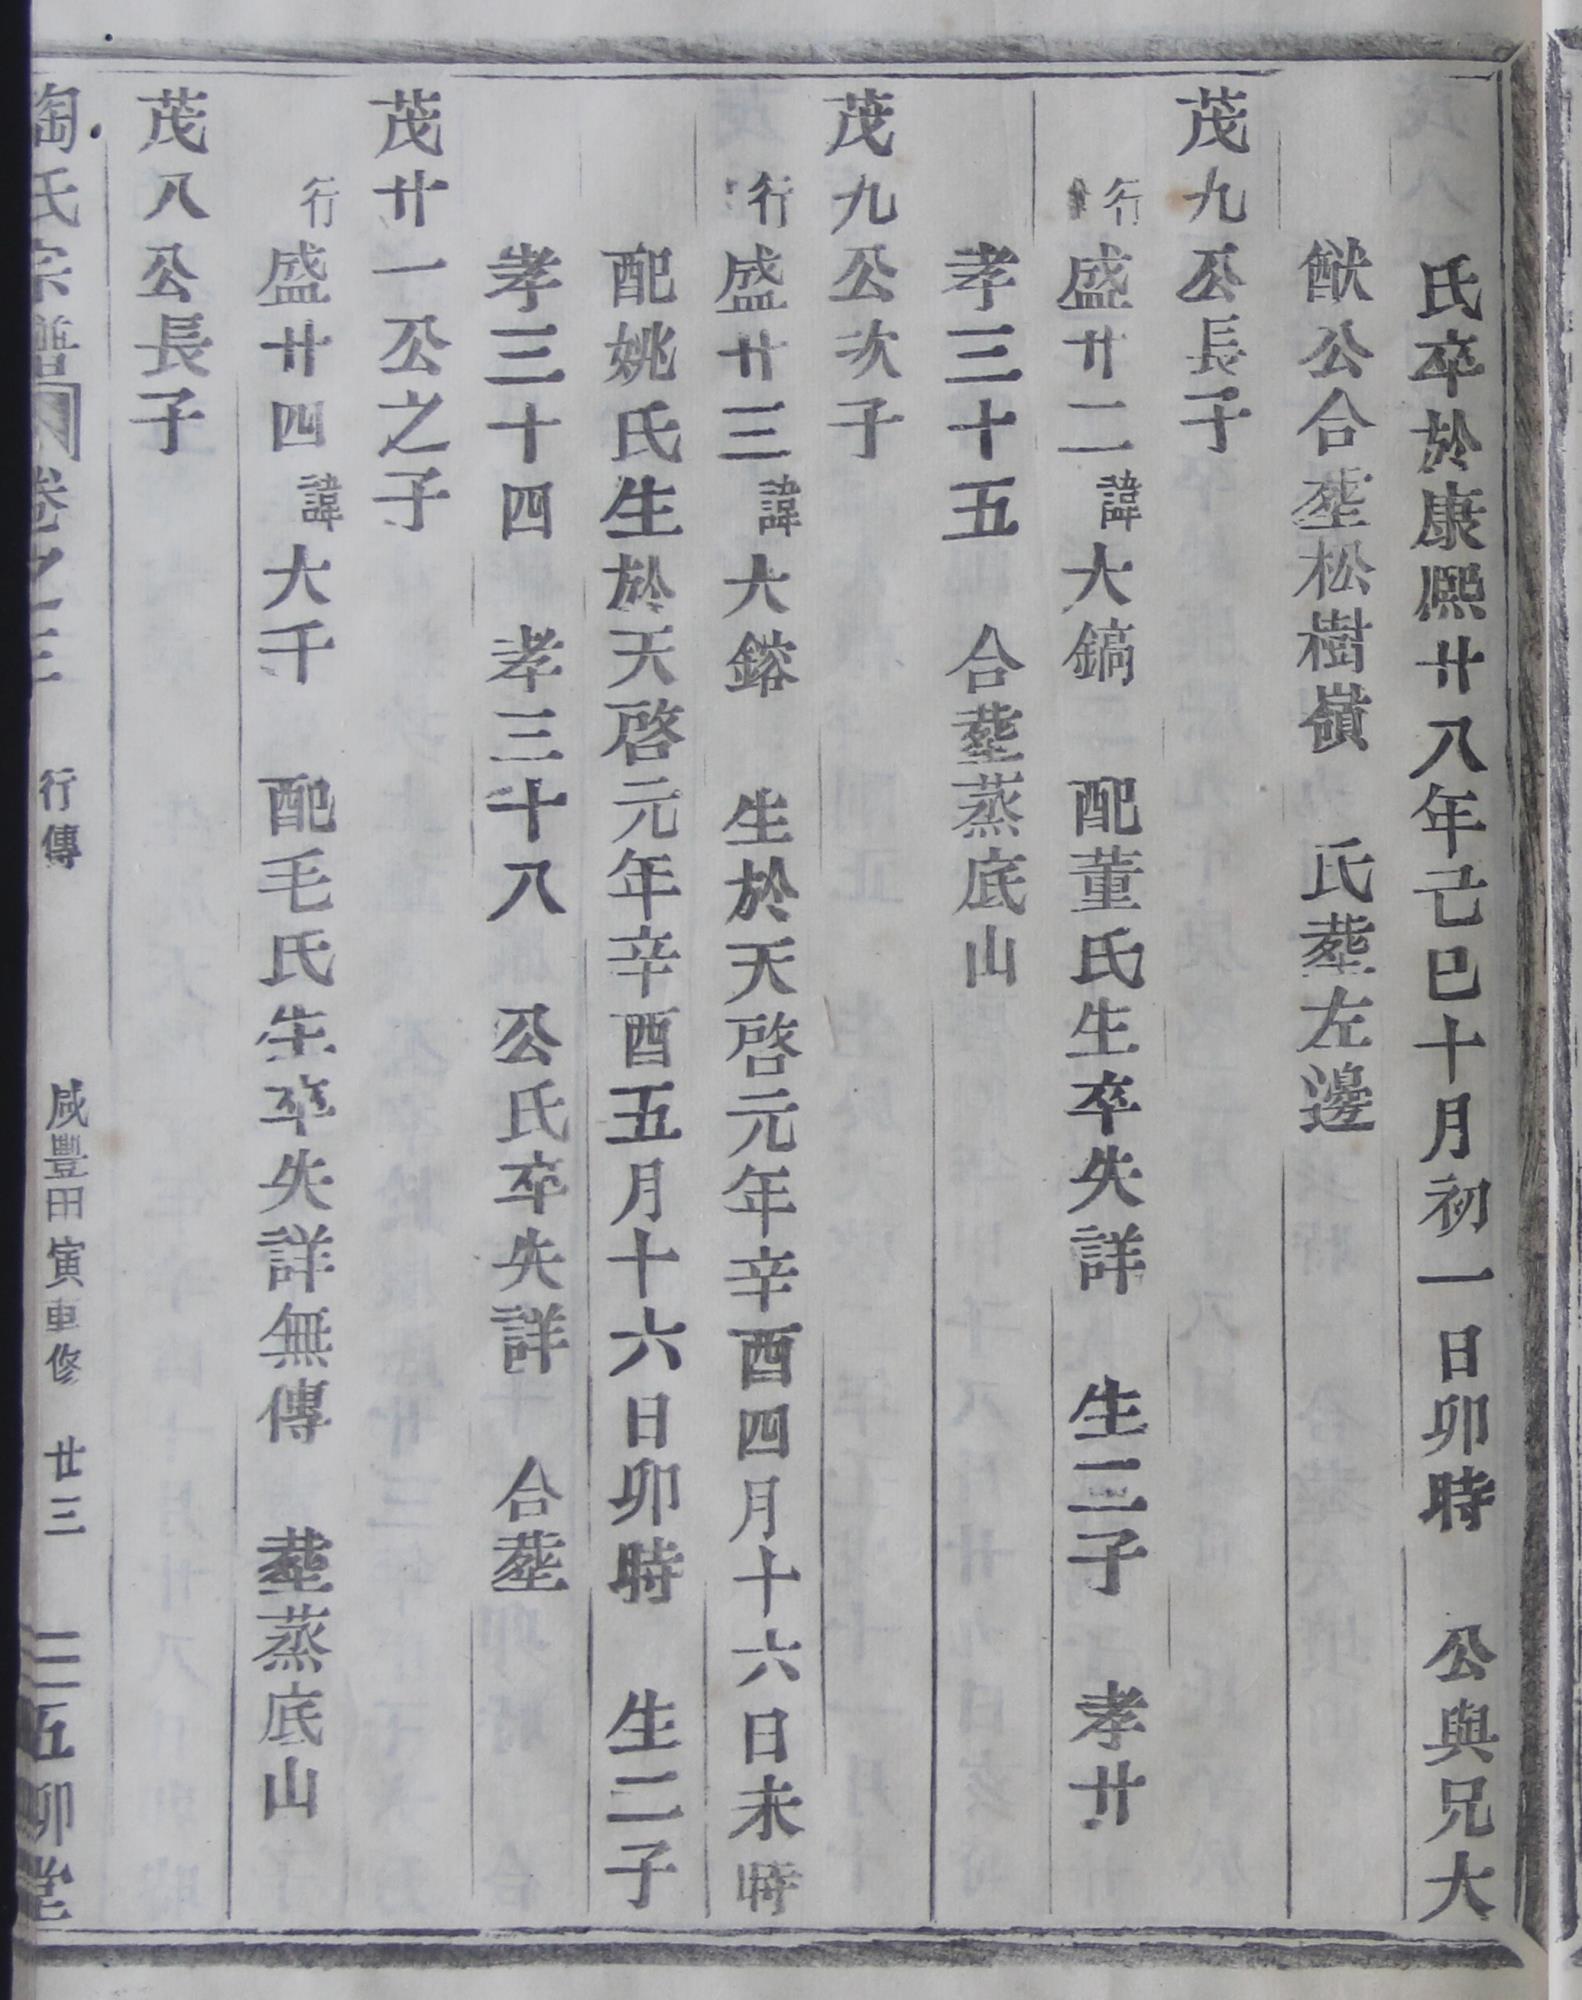 氏卒於康熙廿八年己巳十月初一日卯時　公與兄大
猷公合塟松樹嶺　氏塟左邊
茂九公長子
行盛廿二諱大鎬　配董氏生卒失詳　生三子　孝廿
孝三十五　合塟蒸底山
茂九公次子
行盛廿三諱大鎔　生於天啓元年辛酉四月十六日未時
配姚氏生於天啓元年辛酉五月十六日卯時　生二子
孝三十四　孝三十八　公氏卒失詳　合塟
茂廿一公之子
行盛廿四諱大千　配毛氏生卒失詳無傳　塟蒸底山
茂八公長子
陶氏宗譜　卷之三　行傳　咸豐甲寅重修　廿三　五柳堂